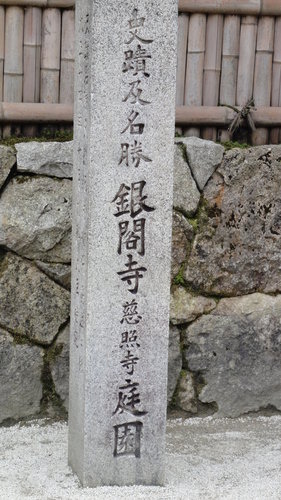 史蹟及名勝 銀閣寺 慈照寺 庭園